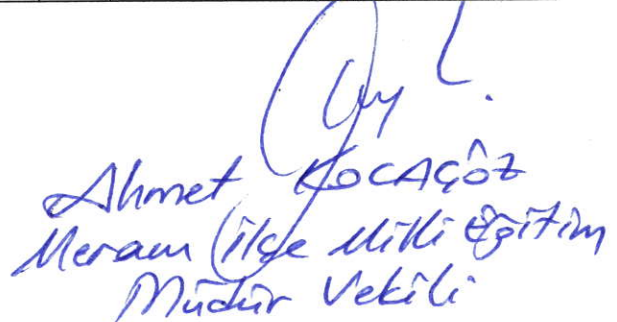 Ahmet KOCAGÖZ
Meram İlçe Milli Eğitim
Müdür Vekili